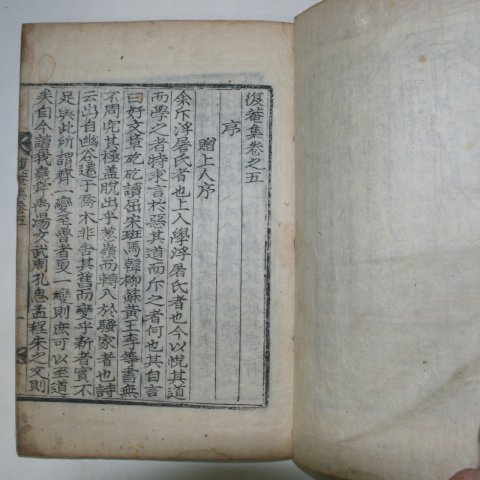 復菴集卷之五
序
贈上人序
余斥浮屠氏者也上人學浮屠氏者也今以悅其道
而學之者特求言於惡其道而斥之者何也其自言
曰好文章矻矻讀屈宋班馬韓柳蘇黃王李等書無
不周究其極盖脫出乎葱嶺而轉入於騷家者也詩
云出自幽谷遷于喬木非舍其舊而變乎新者實不
足與此所謂齊一變至魯者夏一變則庶可以至道
矣自今讀我堯舜禹湯文武周孔思孟程朱之文則
復菴集卷五
一